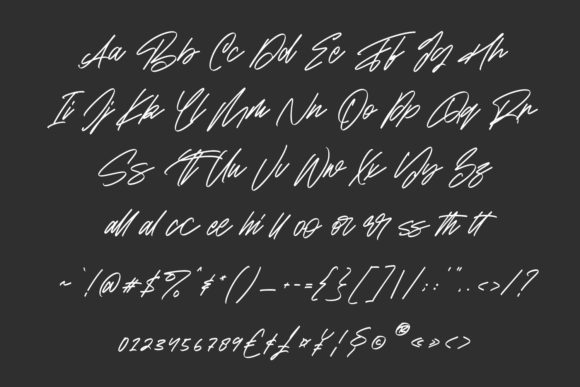 Aa Bb Cc Dd Ee Ff Gg Hh
Ii Jj Kk Ll Mm Nn Oo Pp Qq Rr
Ss Tt Uu Vv Ww Xx Yy Zz
all al cc ee hi ll oo or rr ss th tt
~ ` ! @ # $ % ^ & * ( ) _ + - = { } [ ] \ | / : ; ' " , . < > / ?
0 1 2 3 4 5 6 7 8 9 € ¢ £ ¤ ¥ ¦ § © ® « » < >